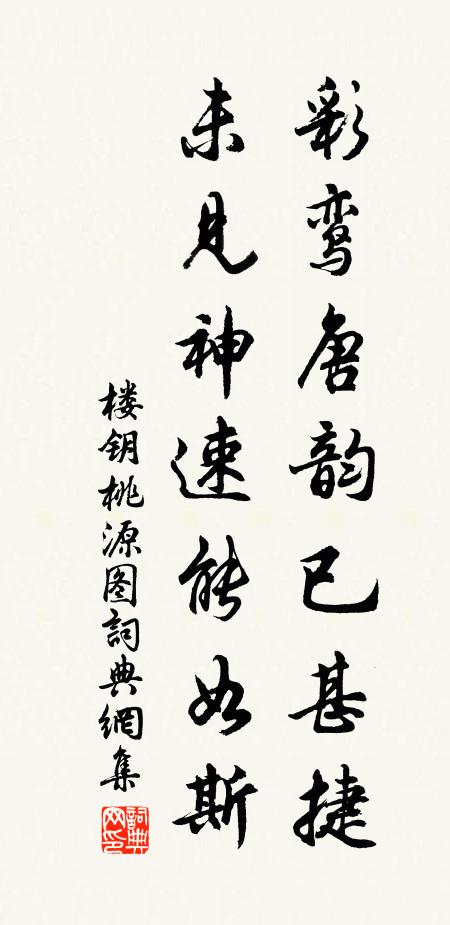 彩鸾唐韵已甚捷
未见神速能如斯
楼钥桃源图詞典網集
詞典网印